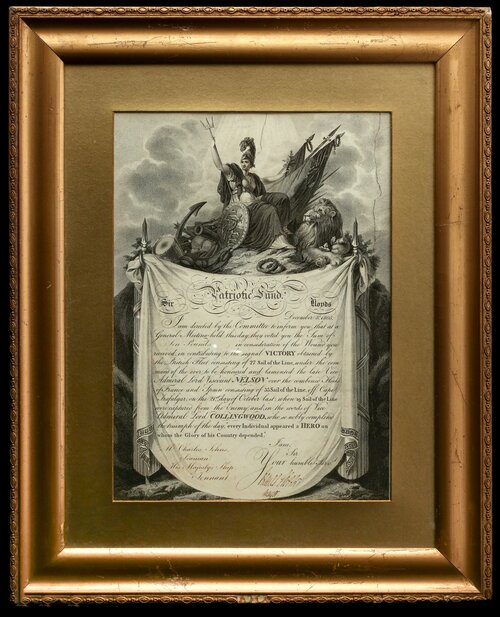 Patriotic Fund.
Sir Lloyds
December 3, 1805.
I am directed by the Committee to inform you, that at a
General Meeting held this day, they voted you the Sum of
Ten Pounds in consideration of the Wound you
received, in contributing to the signal VICTORY obtained by
the British Fleet consisting of 27 Sail of the Line, under the com-
mand of the ever, to be honoured and lamented the late Vice
Admiral Lord Viscount NELSON over the combined Fleets
of France and Spain consisting of 33 Sail of the Line, off Cape
Trafalgar, on the 21st day of October last; when 19 Sail of the Line
were captures from the Enemy; and in the words of Vice
Admiral Lord COLLINGWOOD, who so nobly completed
the triumph of the day, "every Individual appeared a HERO on
whom the Glory of his Country depended."
I am,
Mr Charles Johns Sir
Seaman Your humble
His Majestys Ship
Tennant